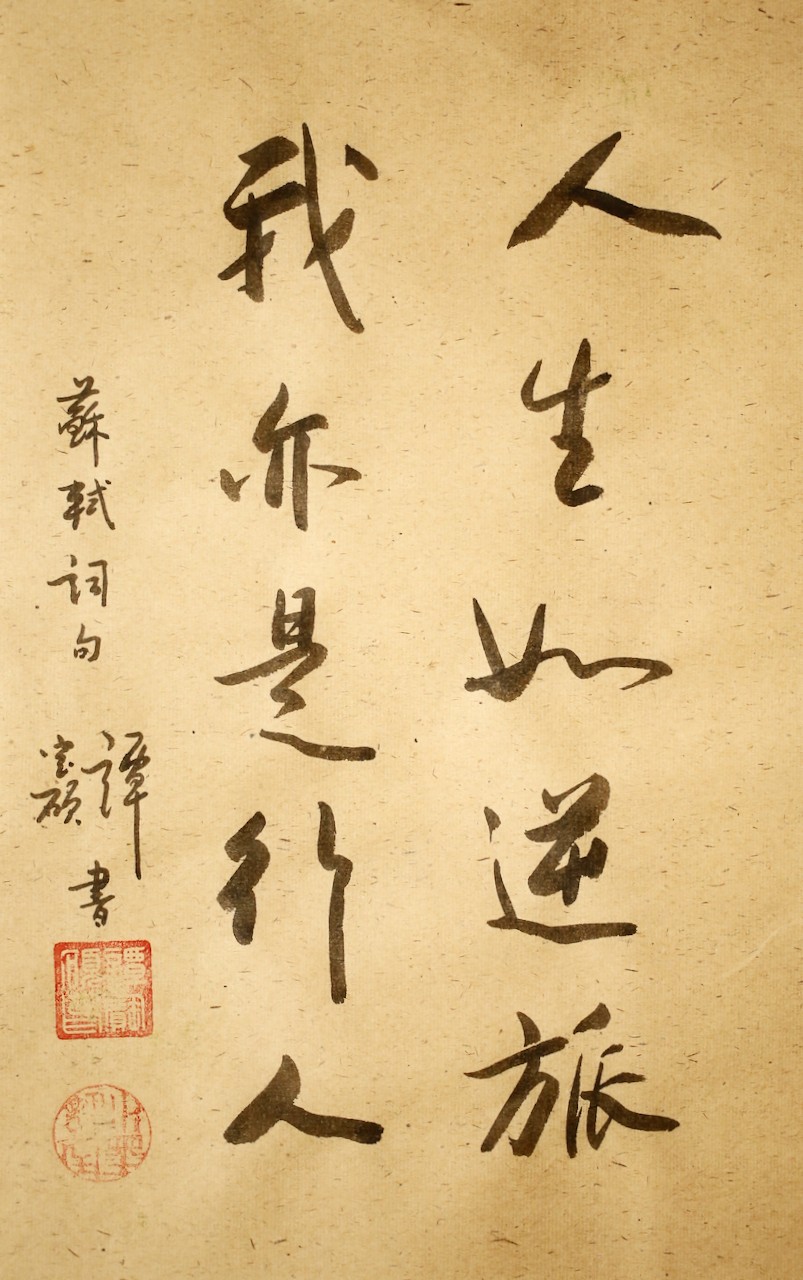 人生如逆旅
我亦是行人
蘇軾詞句 譚
書